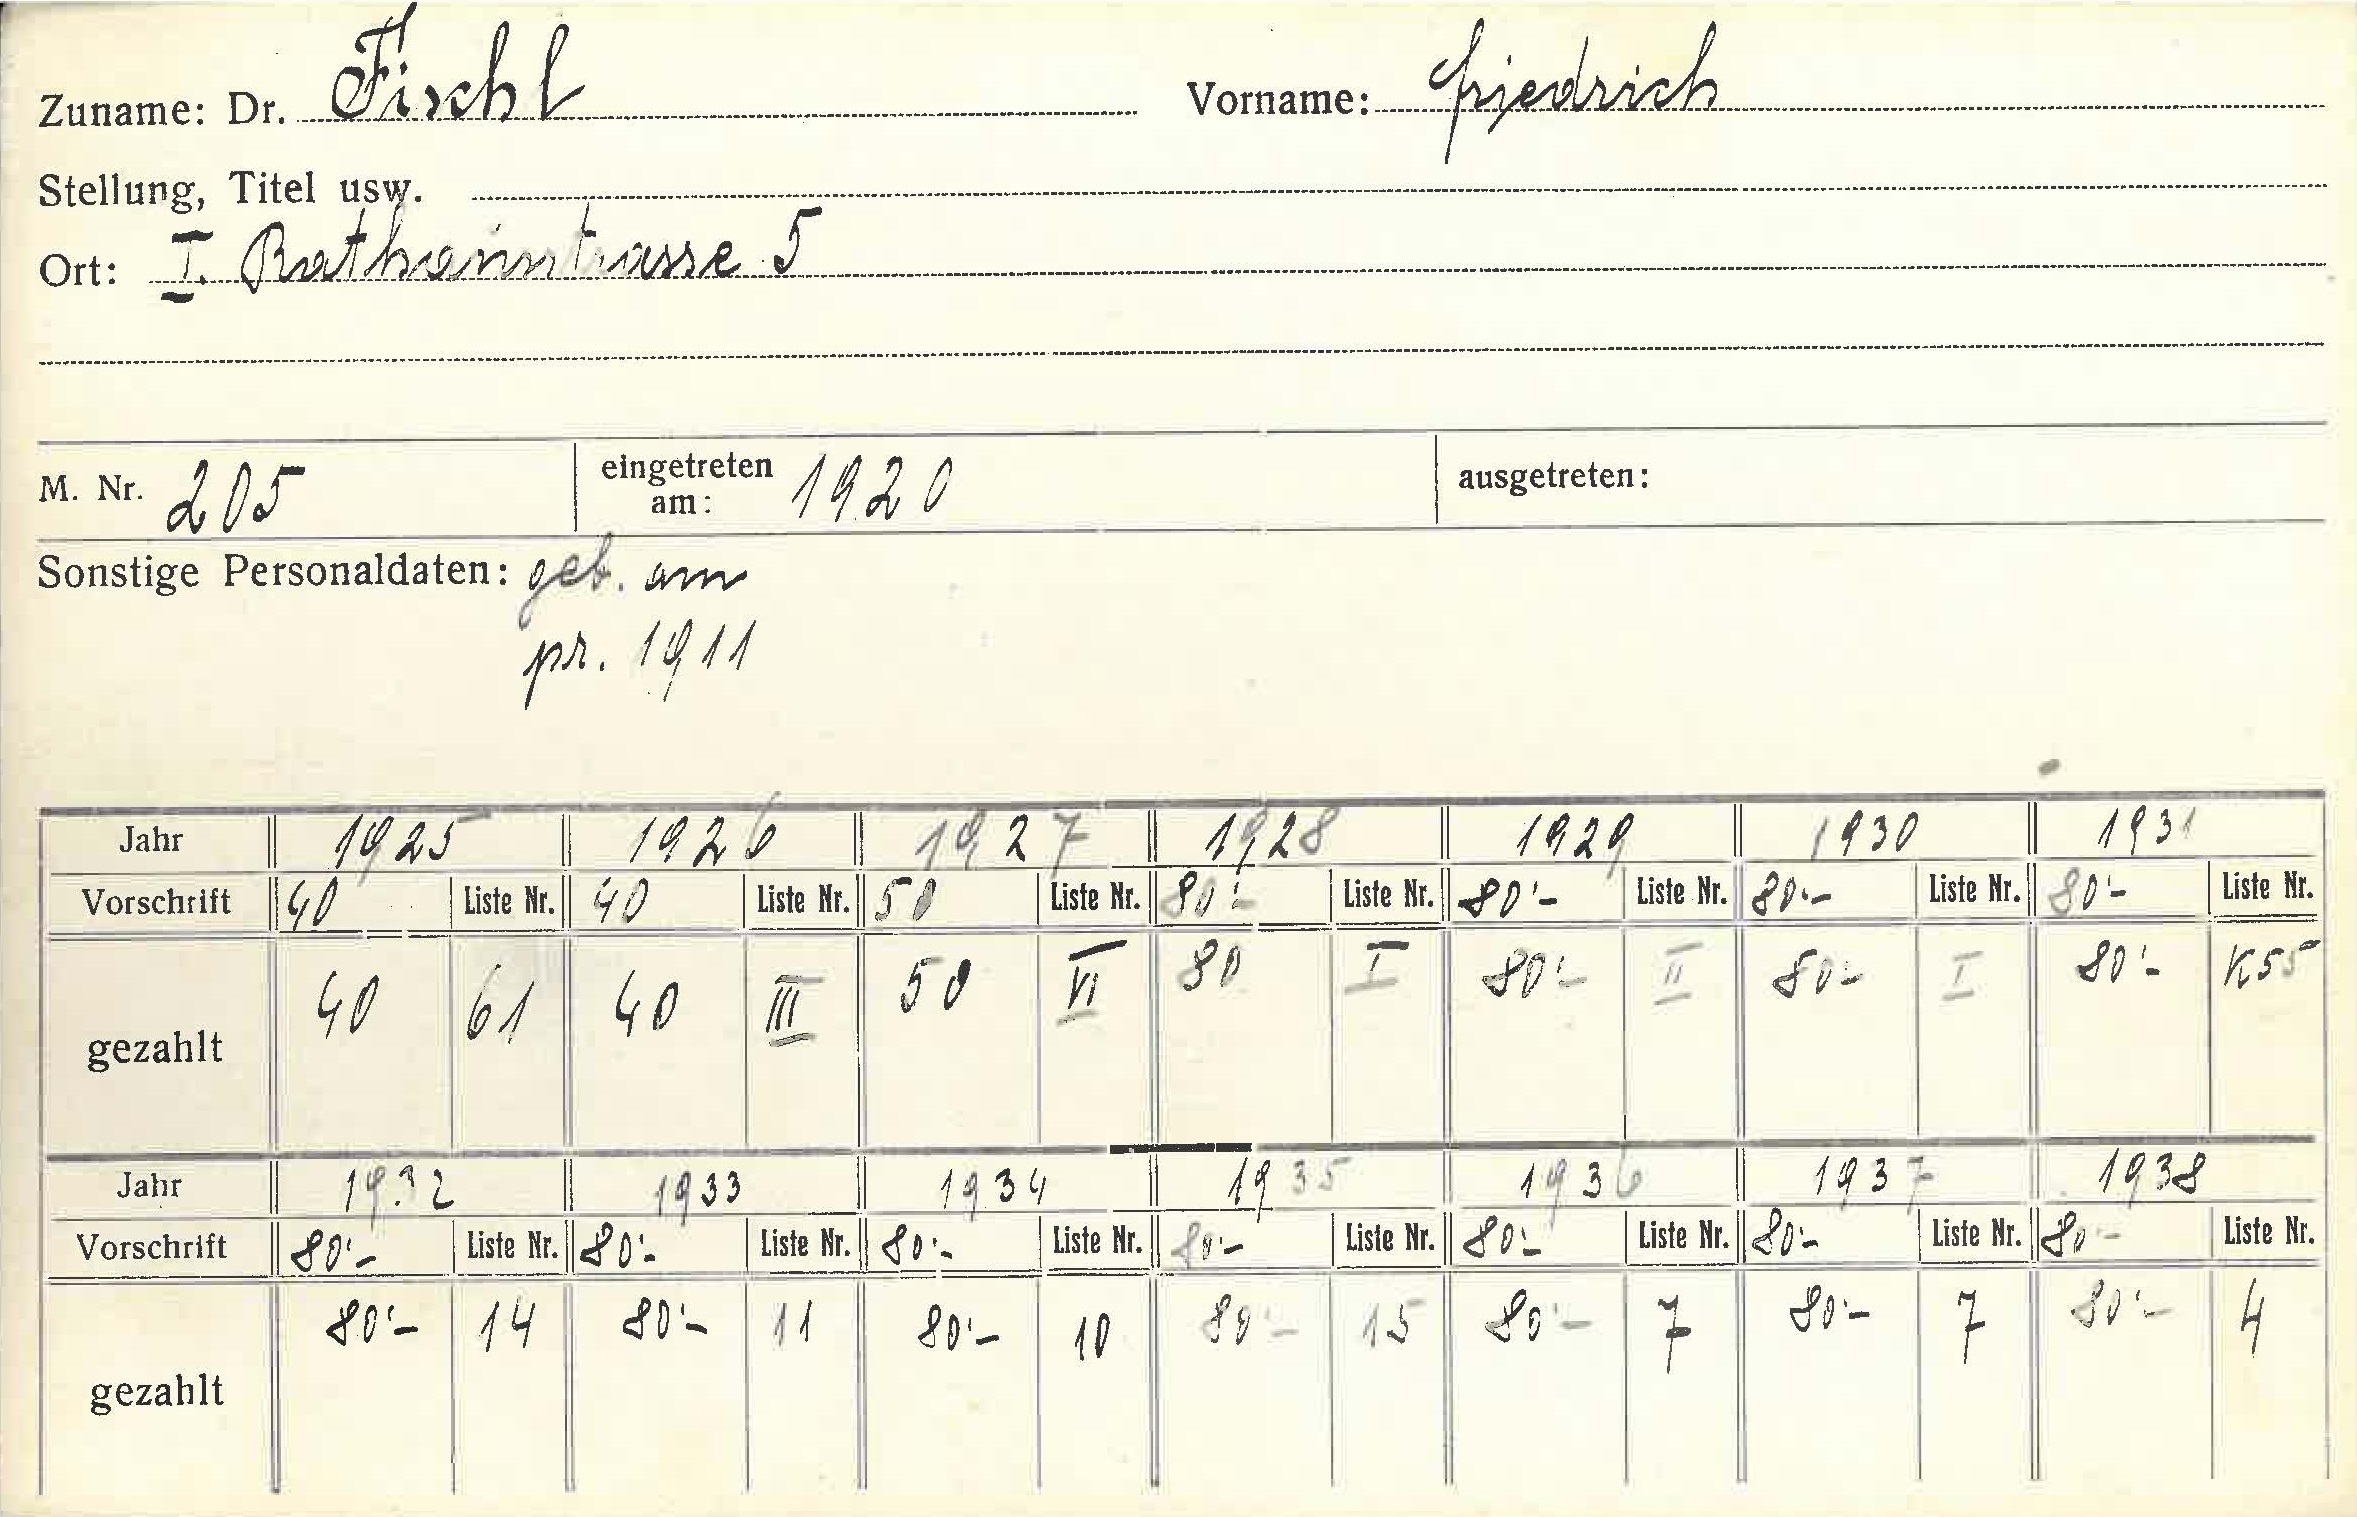 Zuname: Dr. Fischl Vorname: Friedrich
Stellung, Titel usw.
Ort: I. Rathausstrasse 5
M. Nr. 205 eingetreten am: 1920 ausgetreten:
Sonstige Personaldaten: geb. am
pr. 1911
Jahr 1925 1926 1927 1928 1929 1930 1931
Vorschrift 40 Liste Nr. 40 Liste Nr. 50 Liste Nr. 80'- Liste Nr. 80'- Liste Nr. 80'- Liste Nr. 80'- Liste Nr.
gezahlt 40 61 40 III 50 VI 80 I 80'- II 80'- I 80'- K55
Jahr 1932 1933 1934 1935 1936 1937 1938
Vorschrift 80'- Liste Nr. 80'- Liste Nr. 80'- Liste Nr. 80'- Liste Nr. 80'- Liste Nr. 80'- Liste Nr. 80'- Liste Nr.
gezahlt 80'- 14 80'- 11 80'- 10 80'- 15 80'- 7 80'- 7 80'- 4